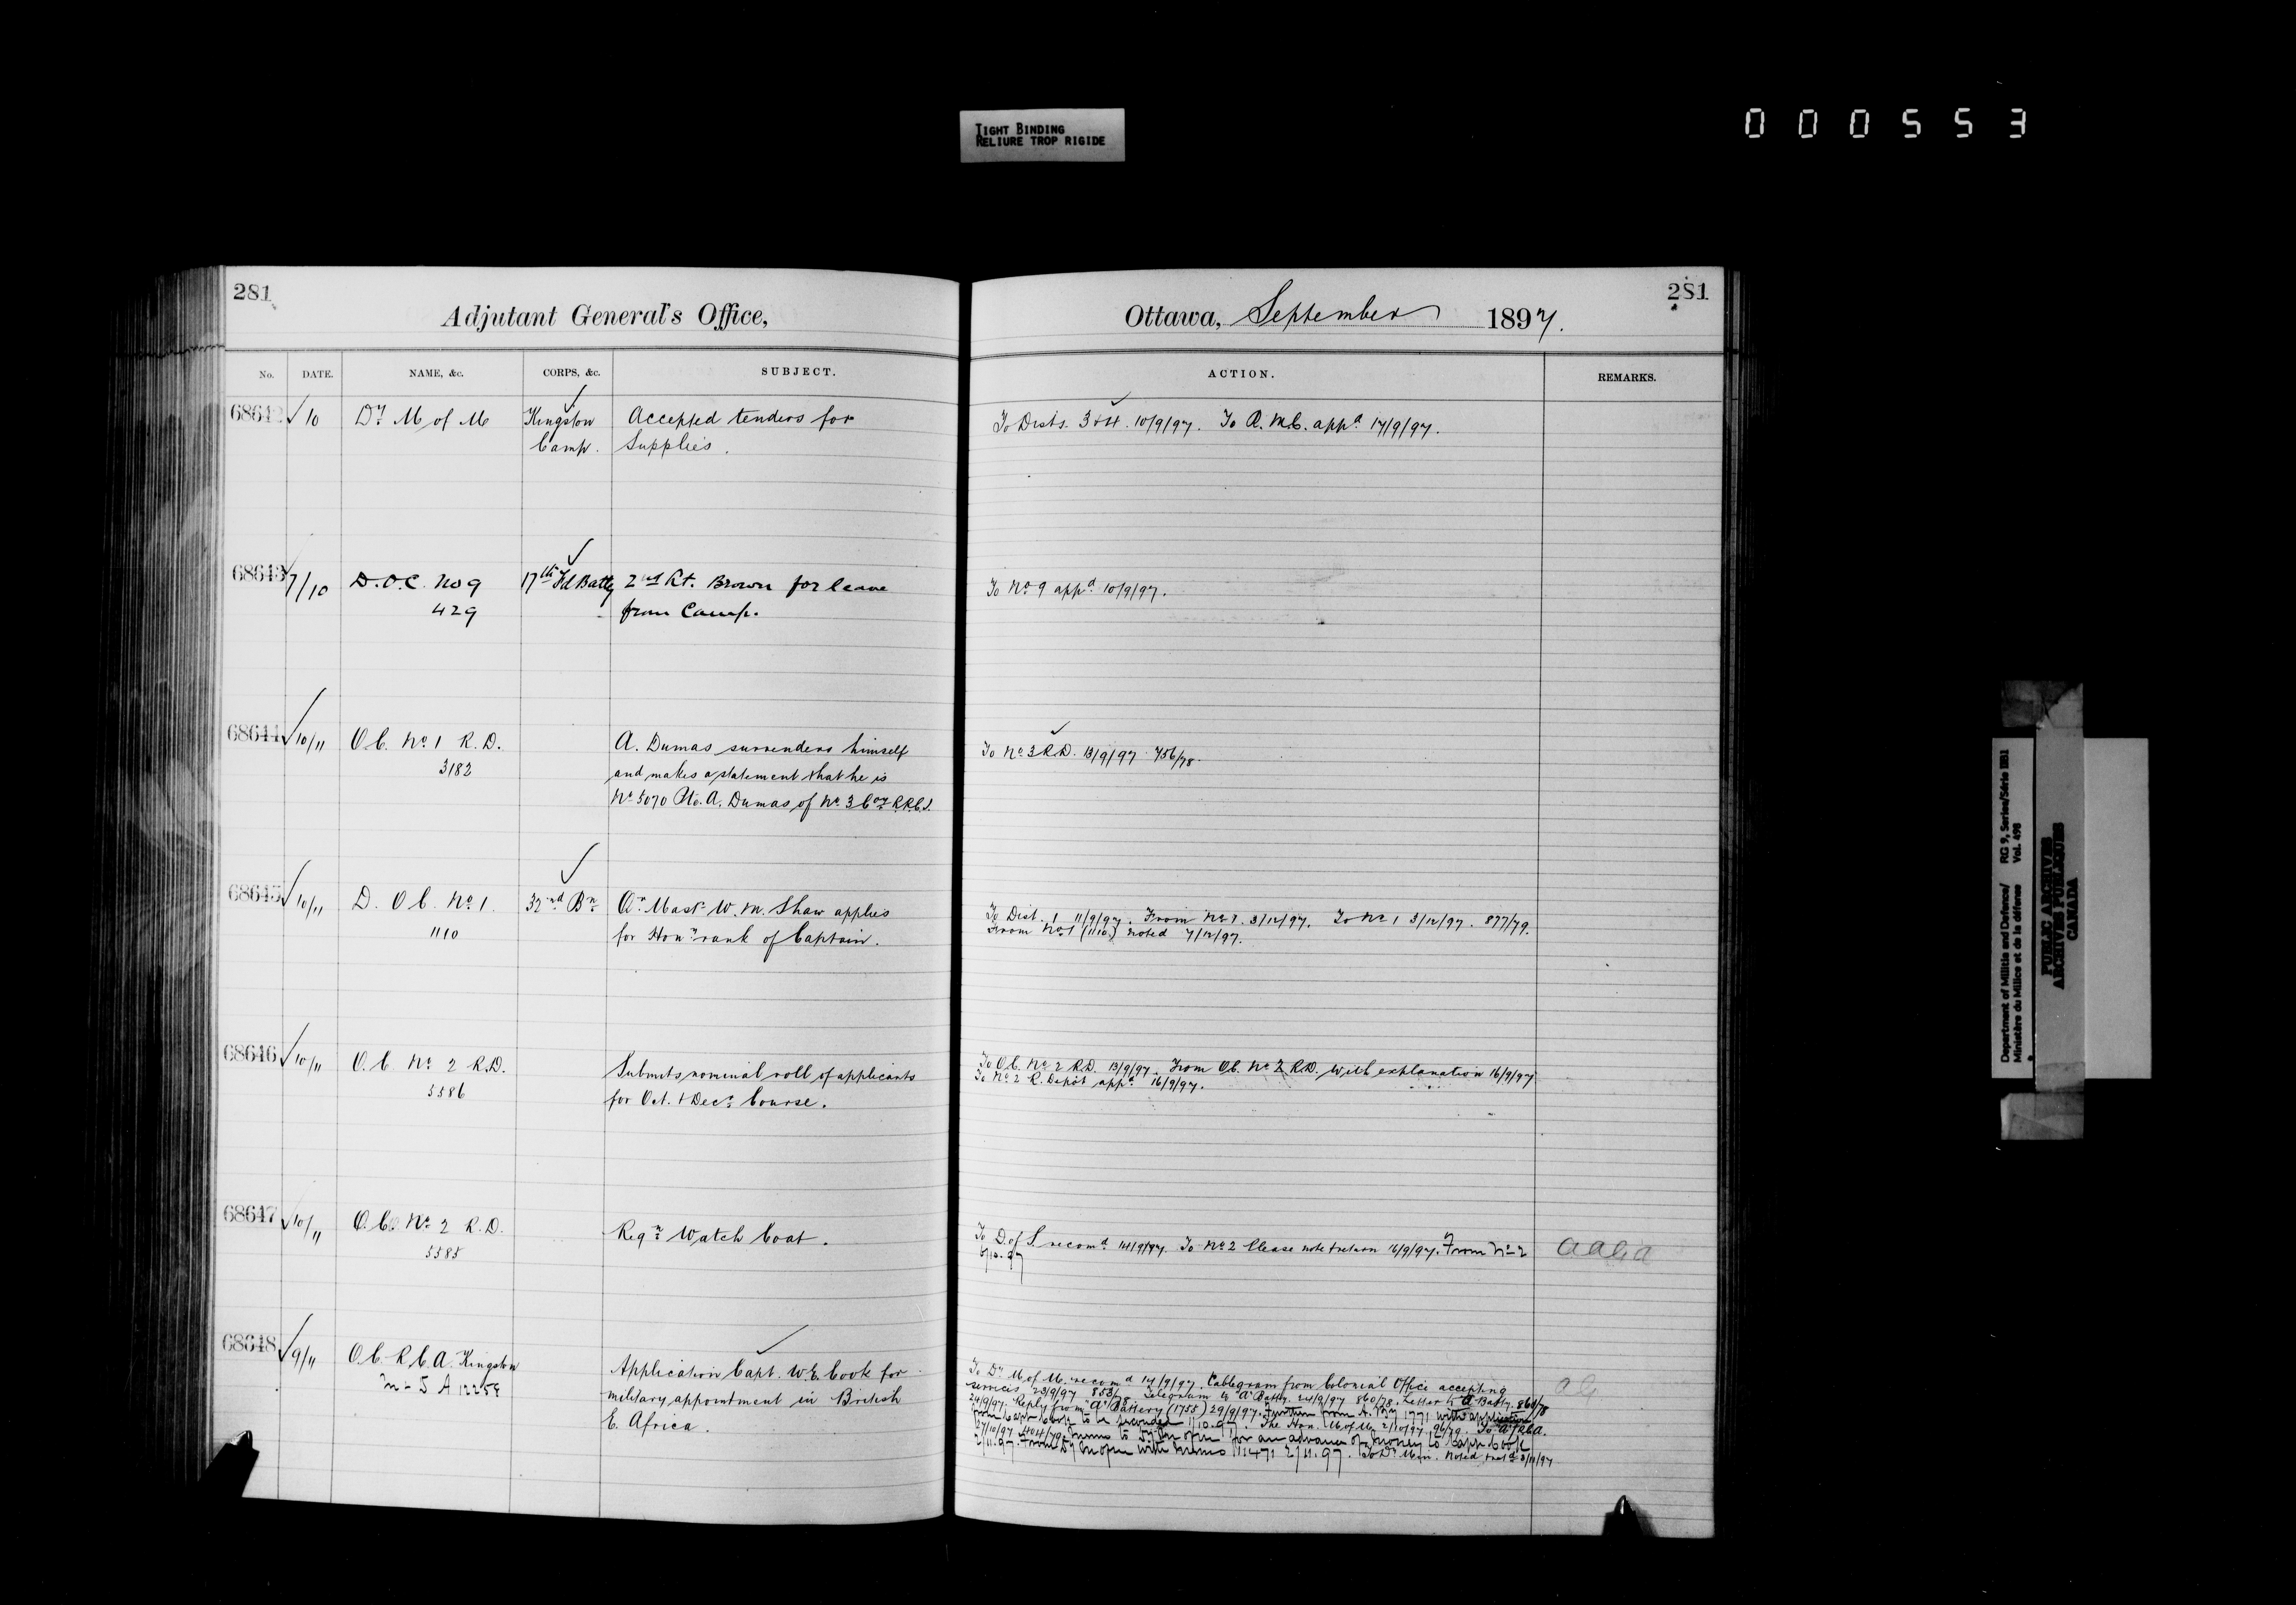 TIGHT BINDING
RELIURE TROP RIGIDE
000553
281
Adjutant General's Office,
No. DATE. NAME, &c. CORPS, &c. SUBJECT.
68642 10 Dr M of M Kingston Accepted tenders for
Camp. Supplies.
68643 7/10 D.O.C. No 9 17th Fd Batty 2nd Lt. Brown for leave
429 from Camp.
68644 10/11 O.C. No 1 R.D. A. Dumas surrenders himself
3182 and makes a statement that he is
No 5070 Pte. A. Dumas of No 3 Coy R.R.C.I.
68645 10/11 D.O.C. No 1. 32nd Bn Qr Mastr W. M. Shaw applies
1110 for Hony rank of Captain.
68646 10/11 O.C. No 2 R.D. Submits nominal roll of applicants
5586 for Oct. & Decr Course.
68647 10/11 O.C. No 2 R.D. Reqn Watch Coat.
5585
68648 9/11 O.C. R.C.A. Kingston Application Capt. W.E. Cook for
A 12259 military appointment in British
E. Africa.
281
Ottawa, September 1897.
ACTION. REMARKS.
To Dists. 3 & 4. 10/9/97. To R.M.C. appd 17/9/97.
To No 9 appd 10/9/97.
To No 3 R.D. 13/9/97 756/78.
To Dist. 1 11/9/97. From No 1. 3/12/97. To No 1 3/12/97. 877/79.
From No 1 (1110) noted 7/12/97.
To O.C. No 2 R.D. 13/9/97. From O.C. No 2 R.D. with explanation 16/9/97
To No 2 R. Depot appd 16/9/97.
To D. of S. recomd 14/9/97. To No 2 Please note & return 16/9/97. From No 2
To Dr M of M. recomd 14/9/97. Cablegram from Colonial Office accepting
services 23/9/97 853/78 Telegram to "A" Batty. 24/9/97 860/78. Letter to "A" Batty. 861/78
24/9/97. Reply from "A" Battery (1755) 29/9/97. Further from A. Bty 1771 with application
from Capt Cook to be seconded 1/10.97. The Hon. M of M. 2/10/97. 96/79. To "A" R.C.A.
for an advance of money to Capt Cook
2/11.97. with memo 11471 2/11.97. To Dr M of M. Noted & retd 3/11/97
Department of Militia and Defence/ RG 9, Series/Série IIB1
Ministère du Milice et de la défense Vol. 498
PUBLIC ARCHIVES
ARCHIVES PUBLIQUES
CANADA